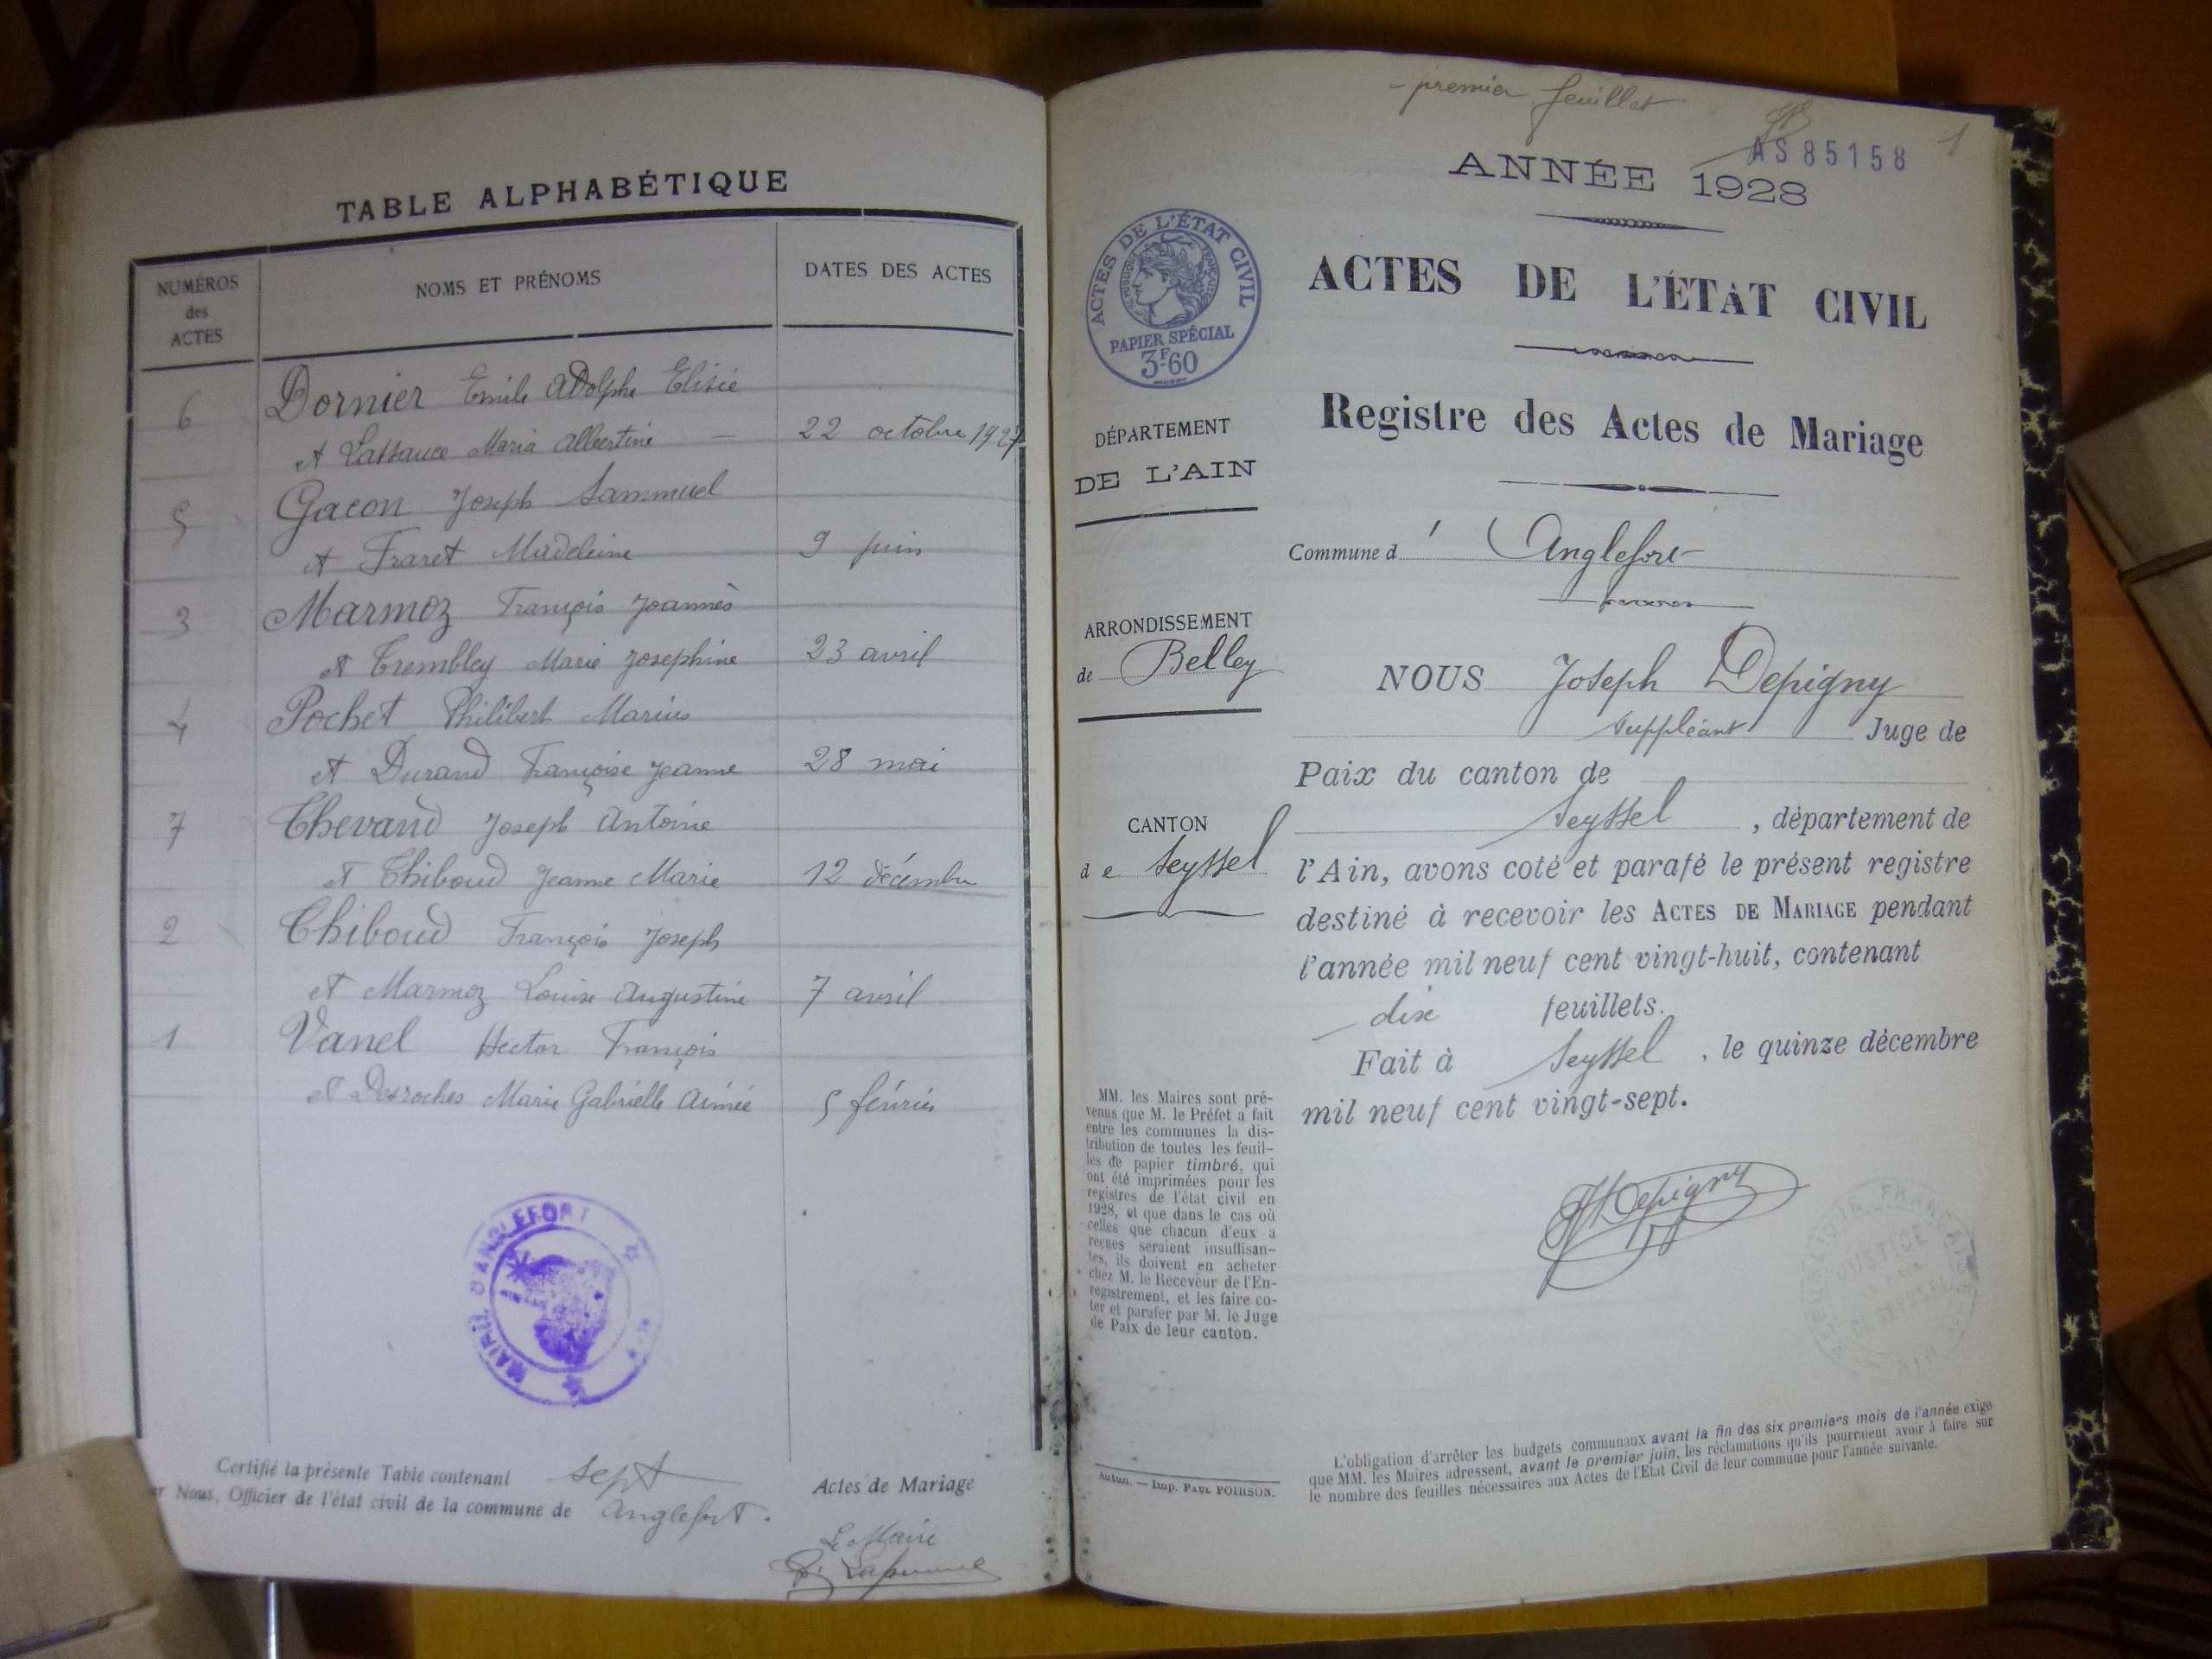 TABLE ALPHABÉTIQUE
NUMÉROS
des
ACTES
NOMS ET PRÉNOMS
DATES DES ACTES
6 Dornier Emile Adolphe Elisée
et Lassauce Maria Albertine — 22 octobre 1927
5 Gacon Joseph Sammuel
et Fraret Madeleine 9 juin
3 Marmoz François Joannès
et Trembley Marie Josephine 23 avril
4 Pochet Philibert Marius
et Durand Françoise Jeanne 28 mai
7 Thevand Joseph Antoine
et Thiboud Jeanne Marie 12 décembre
2 Thiboud François Joseph
et Marmoz Louise Augustine 7 avril
1 Vanel Hector François
et Desroches Marie Gabrielle Aimée 5 février
MAIRIE D'ANGLEFORT
Certifié la présente Table contenant sept Actes de Mariage
Nous, Officier de l'état civil de la commune de Anglefort.
Le Maire
- premier feuillet
1
AS 85158
ANNÉE 1928
ACTES DE L'ÉTAT CIVIL
PAPIER SPÉCIAL
3F60
ACTES DE L'ÉTAT CIVIL
Registre des Actes de Mariage
DÉPARTEMENT
DE L'AIN
Commune d' Anglefort
ARRONDISSEMENT
de Belley
CANTON
de Seyssel
NOUS Joseph Depigny
suppléant Juge de
Paix du canton de
Seyssel, département de
l'Ain, avons coté et parafé le présent registre
destiné à recevoir les ACTES DE MARIAGE pendant
l'année mil neuf cent vingt-huit, contenant
dix feuillets.
Fait à Seyssel, le quinze décembre
mil neuf cent vingt-sept.
Depigny
MM. les Maires sont pré-
venus que M. le Préfet a fait
entre les communes la dis-
tribution de toutes les feuil-
les de papier timbré, qui
ont été imprimées pour les
registres de l'état civil en
1928, et que dans le cas où
celles que chacun d'eux a
reçues seraient insuffisan-
tes, ils doivent en acheter
chez M. le Receveur de l'En-
registrement, et les faire co-
ter et parafer par M. le Juge
de Paix de leur canton.
Autun. — Imp. PAUL POIRSON.
L'obligation d'arrêter les budgets communaux avant la fin des six premiers mois de l'année exige
que MM. les Maires adressent, avant le premier juin, les réclamations qu'ils pourraient avoir à faire sur
le nombre des feuilles nécessaires aux Actes de l'Etat Civil de leur commune pour l'année suivante.